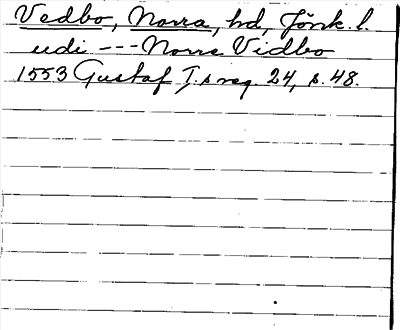 Vedbo, Norra, hd, Jönk. l.
udi --- Norre Vidbo
1553 Gustaf I.s reg. 24, s. 48.